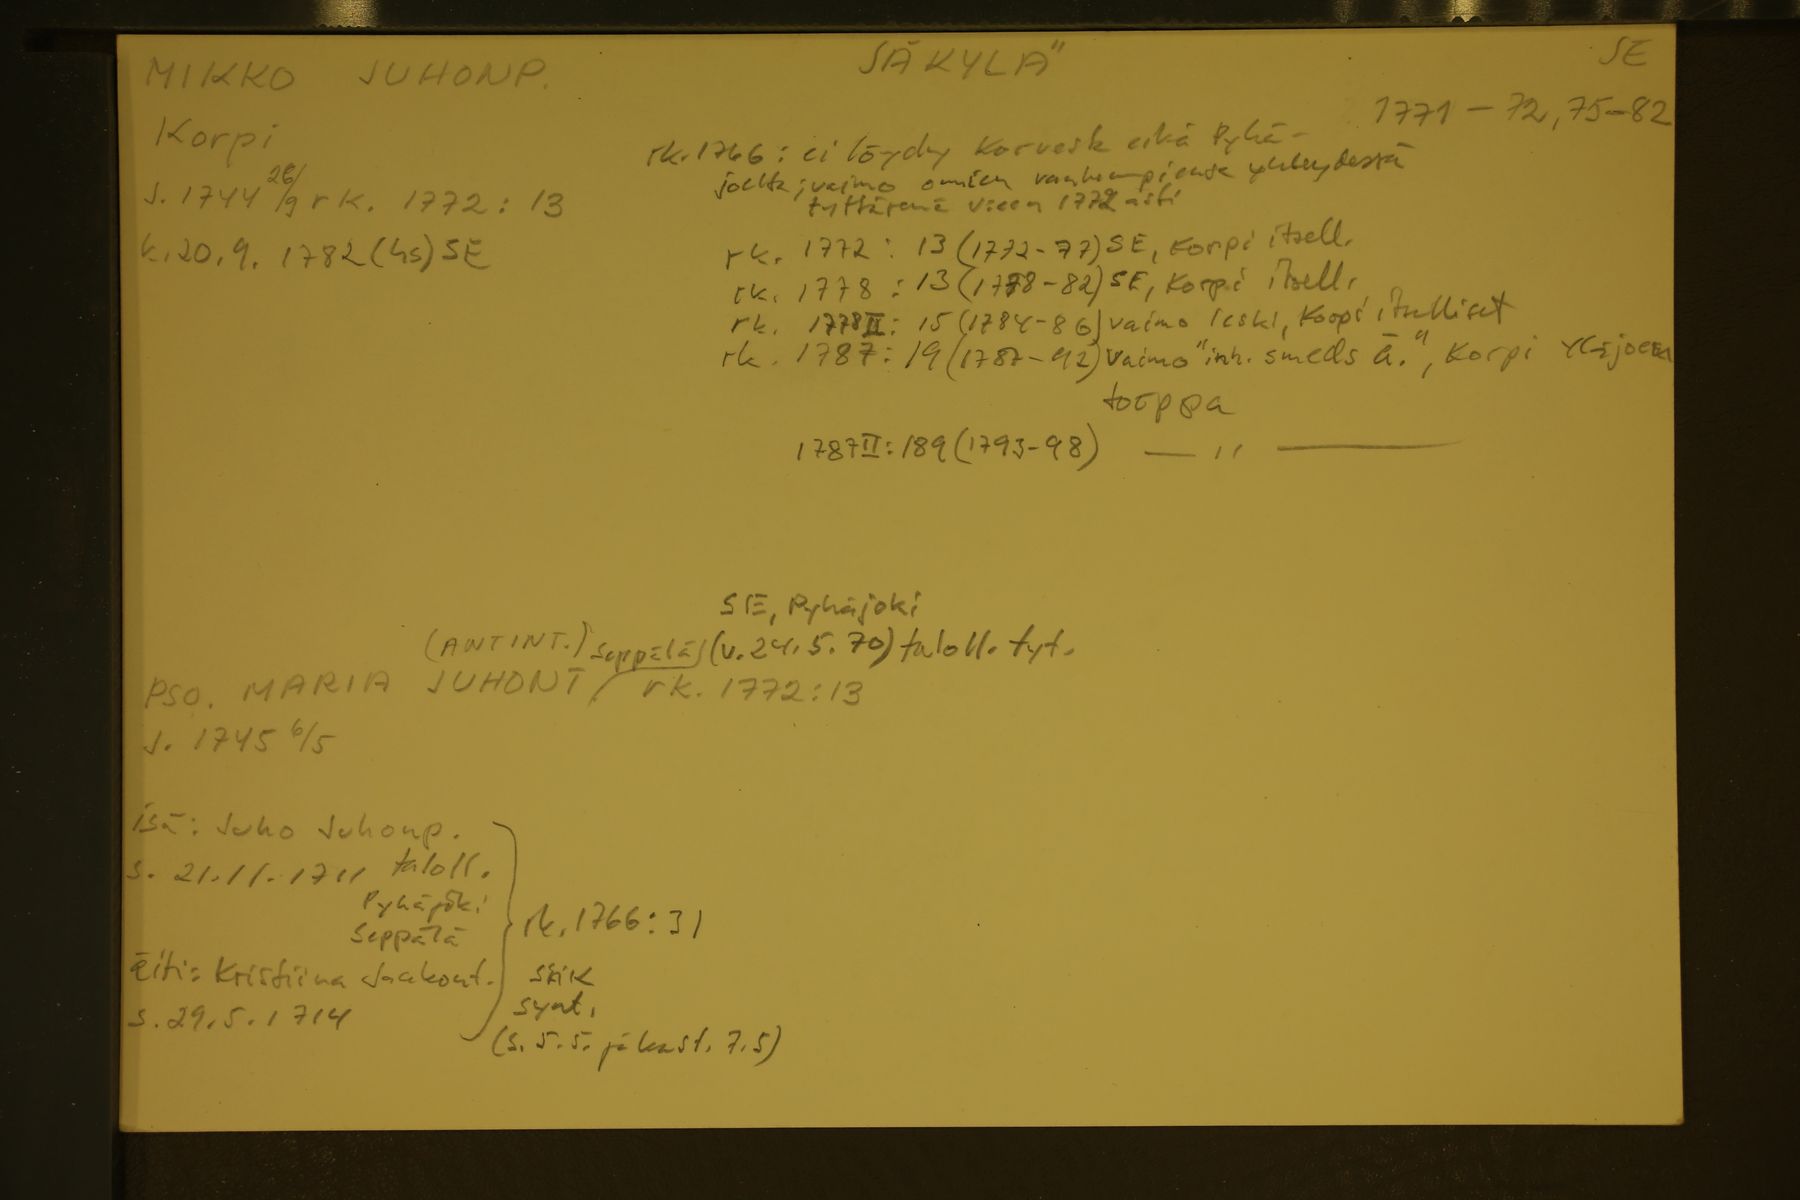 MIKKO JUHONP. SÄKYLÄ SE
1771-72, 75-82
Korpi
s. 1744 26/9 rk. 1772: 13
k. 20.9. 1782 (hs) SE
rk. 1766: ei löydy Korvesk eikä Pyhä-
joelta; vaimo omien vanhempiensa yhteydessä
tyttärenä vuoen 1772 asti
rk. 1772: 13 (1772-77) SE, Korpi itsell.
rk. 1778: 13 (1778-82) SE, Korpi itsell.
rk. 1778 II: 15 (1784-86) vaimo leski, Korpi itselliset
rk. 1787: 19 (1787-92) vaimo "inh. smeds ä.", Korpi Yläjoen
torppa
1787 II: 189 (1793-98) — " —
SE, Pyhäjoki
(ANTINT.) Seppälä (v. 24.5.70) taloll. tyt.
PSO. MARIA JUHONT / rk. 1772: 13
s. 1745 6/5
isä: Juho Juhonp.
s. 21.11. 1711 taloll.
Pyhäjoki
Seppälä
rk. 1766: 31
äiti: Kristiina Jaakont.
s. 29.5. 1714
SÄIK
synt.
(s. 5.5. ja kast. 7.5)